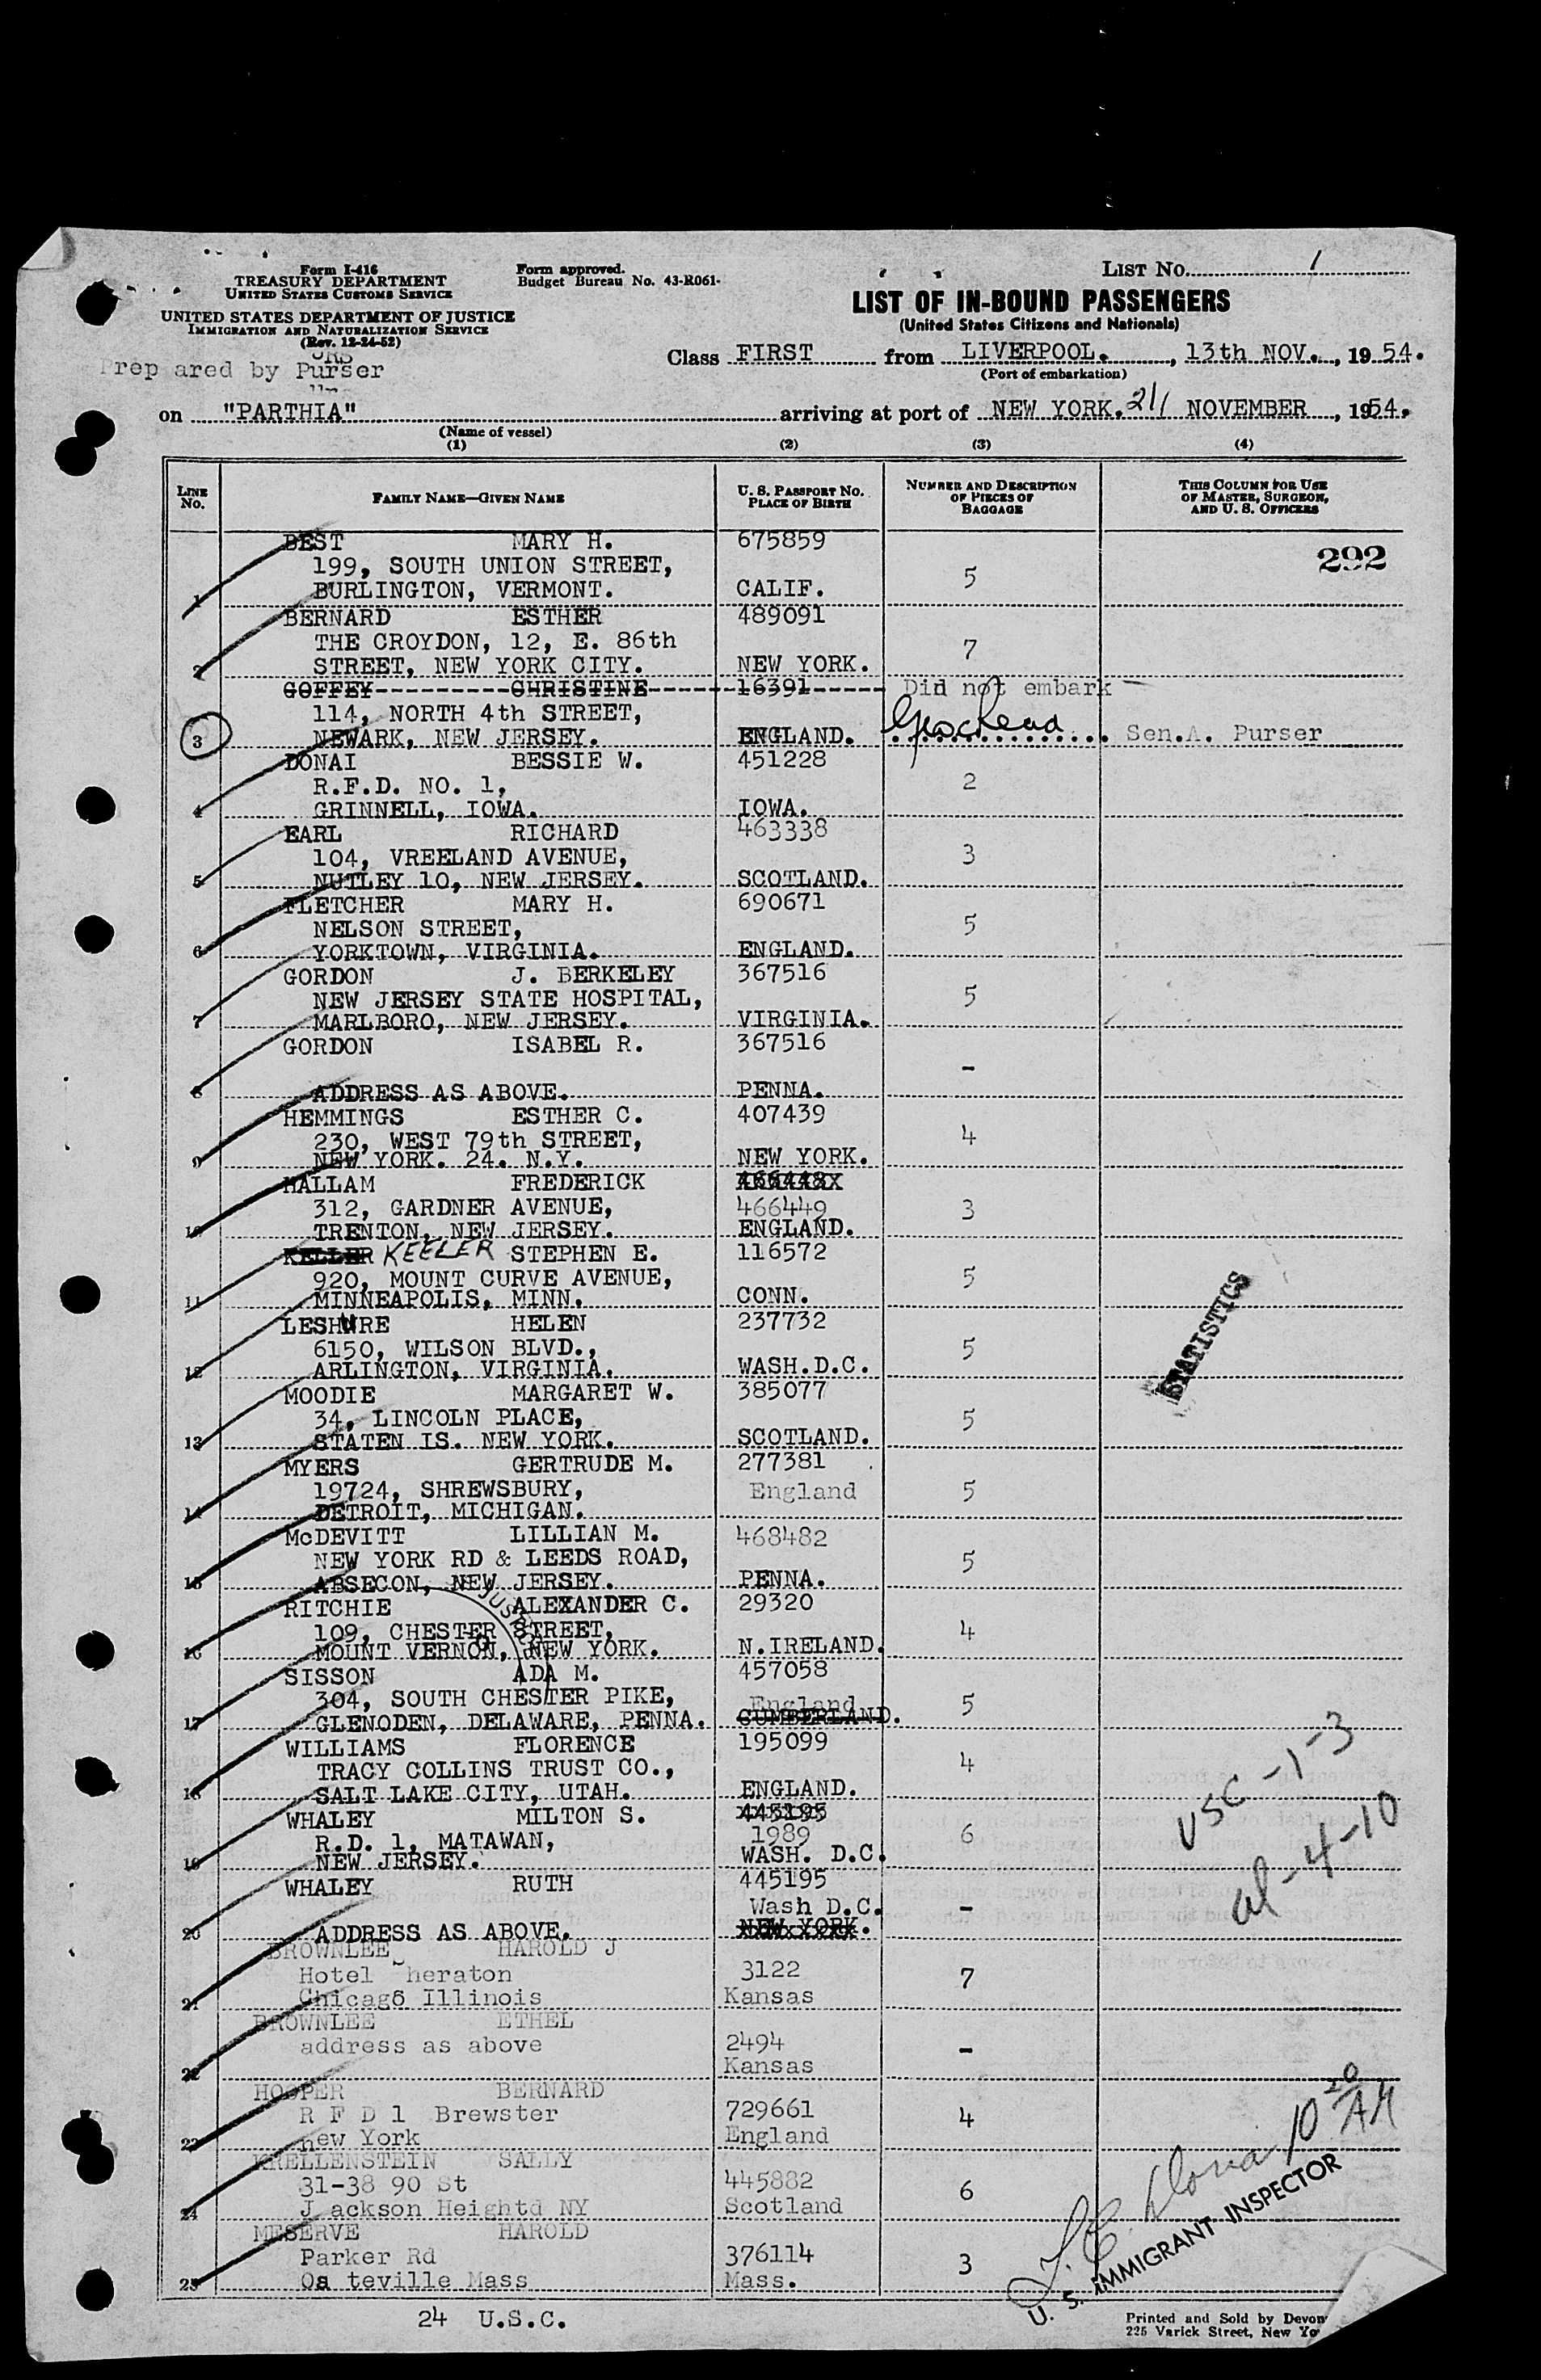 Form I-416
TREASURY DEPARTMENT
UNITED STATES CUSTOMS SERVICE
UNITED STATES DEPARTMENT OF JUSTICE
IMMIGRATION AND NATURALIZATION SERVICE
(Rev. 12-24-52)
Form approved.
Budget Bureau No. 43-R061-
LIST NO. 1
LIST OF IN-BOUND PASSENGERS
(United States Citizens and Nationals)
Prep ared by Purser
Class FIRST from LIVERPOOL. , 13th NOV. , 19 54.
(Port of embarkation)
on "PARTHIA" arriving at port of NEW YORK. 21/ NOVEMBER , 1954.
(Name of vessel)
(1) (2) (3) (4)
LINE No. FAMILY NAME—GIVEN NAME U. S. PASSPORT NO. PLACE OF BIRTH NUMBER AND DESCRIPTION OF PIECES OF BAGGAGE THIS COLUMN FOR USE OF MASTER, SURGEON, AND U. S. OFFICERS
BEST MARY H. 675859
292
199, SOUTH UNION STREET, 5
1 BURLINGTON, VERMONT. CALIF.
BERNARD ESTHER 489091
THE CROYDON, 12, E. 86th 7
2 STREET, NEW YORK CITY. NEW YORK.
GOFFEY----------CHRISTINE------16391----- Did not embark
114, NORTH 4th STREET,
3 NEWARK, NEW JERSEY. ENGLAND. Sen.A. Purser
DONAI BESSIE W. 451228
R.F.D. NO. 1, 2
4 GRINNELL, IOWA. IOWA.
EARL RICHARD 463338
104, VREELAND AVENUE, 3
5 NUTLEY 10, NEW JERSEY. SCOTLAND.
FLETCHER MARY H. 690671
NELSON STREET, 5
6 YORKTOWN, VIRGINIA. ENGLAND.
GORDON J. BERKELEY 367516
NEW JERSEY STATE HOSPITAL, 5
7 MARLBORO, NEW JERSEY. VIRGINIA.
GORDON ISABEL R. 367516
-
8 ADDRESS AS ABOVE. PENNA.
HEMMINGS ESTHER C. 407439
230, WEST 79th STREET, 4
9 NEW YORK. 24. N.Y. NEW YORK.
HALLAM FREDERICK 466448X
312, GARDNER AVENUE, 466449 3
10 TRENTON, NEW JERSEY. ENGLAND.
KELLER KEELER STEPHEN E. 116572
920, MOUNT CURVE AVENUE, 5
11 MINNEAPOLIS, MINN. CONN.
LESHURE HELEN 237732
6150, WILSON BLVD., 5
12 ARLINGTON, VIRGINIA. WASH.D.C.
STATISTICS
MOODIE MARGARET W. 385077
34, LINCOLN PLACE, 5
13 STATEN IS. NEW YORK. SCOTLAND.
MYERS GERTRUDE M. 277381
19724, SHREWSBURY, England 5
14 DETROIT, MICHIGAN.
McDEVITT LILLIAN M. 468482
NEW YORK RD & LEEDS ROAD, 5
15 ABSECON, NEW JERSEY. PENNA.
RITCHIE ALEXANDER C. 29320
109, CHESTER STREET, 4
16 MOUNT VERNON, NEW YORK. N.IRELAND.
SISSON ADA M. 457058
304, SOUTH CHESTER PIKE, England 5
17 GLENODEN, DELAWARE, PENNA. CUMBERLAND.
WILLIAMS FLORENCE 195099
TRACY COLLINS TRUST CO., 4
18 SALT LAKE CITY, UTAH. ENGLAND.
WHALEY MILTON S. 445195
R.D. 1, MATAWAN, 1989 6
19 NEW JERSEY. WASH. D.C.
USC-1-3
al-4-10
WHALEY RUTH 445195
Wash D.C. -
20 ADDRESS AS ABOVE. NEW YORK.
BROWNLEE HAROLD J
Hotel heraton 3122 7
21 Chicago Illinois Kansas
BROWNLEE ETHEL
address as above 2494 -
22 Kansas
HOOPER BERNARD
R F D 1 Brewster 729661 4
23 new York England
KRELLENSTEIN SALLY
31-38 90 St 445882 6
24 J ackson Heightd NY Scotland
MESERVE HAROLD
Parker Rd 376114 3
25 Os teville Mass Mass.
10 20 AM
U. S. IMMIGRANT INSPECTOR
24 U.S.C.
Printed and Sold by Devon
225 Varick Street, New Yo